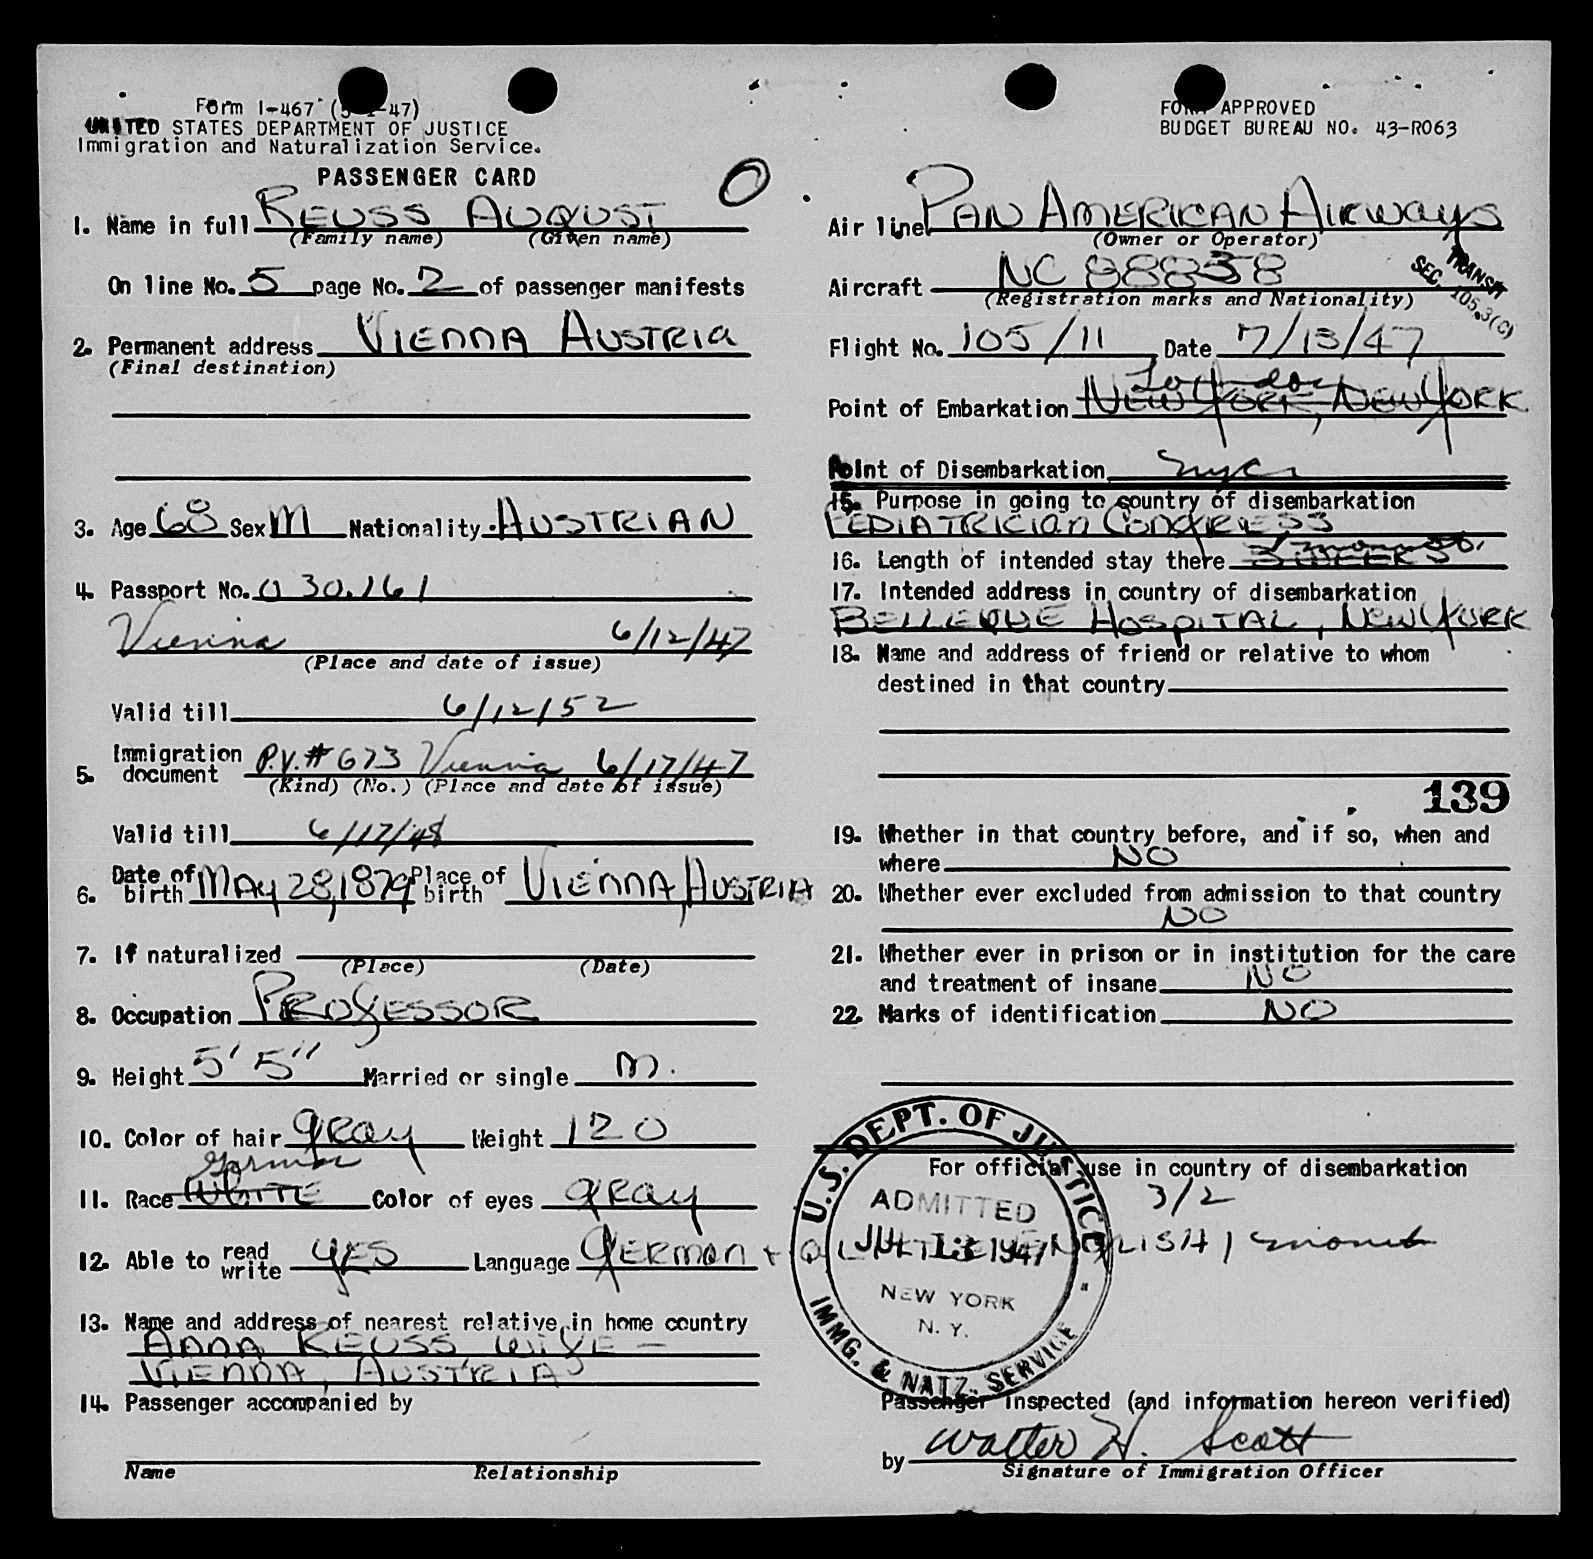 Form I-467 (5-1-47)
UNITED STATES DEPARTMENT OF JUSTICE
Immigration and Naturalization Service.
PASSENGER CARD
FORM APPROVED
BUDGET BUREAU NO. 43-R063
1. Name in full REUSS AUGUST
(Family name) (Given name)
On line No. 5 page No. 2 of passenger manifests
2. Permanent address VIENNA AUSTRIA
(Final destination)
3. Age 68 Sex M Nationality AUSTRIAN
4. Passport No. 030.161
Vienna 6/12/47
(Place and date of issue)
Valid till 6/12/52
5. Immigration document P.V.# 673 Vienna 6/17/47
(Kind) (No.) (Place and date of issue)
Valid till 6/17/48
6. Date of birth MAY 28, 1879 Place of birth VIENNA, AUSTRIA
7. If naturalized
(Place) (Date)
8. Occupation PROFESSOR
9. Height 5' 5" Married or single M.
10. Color of hair GRAY Weight 120
German
11. Race WHITE Color of eyes GRAY
12. Able to read write YES Language GERMAN + A LITTLE ENGLISH
13. Name and address of nearest relative in home country
ANNA REUSS WIFE -
VIENNA, AUSTRIA
14. Passenger accompanied by
Name Relationship
Air line PAN AMERICAN AIRWAYS
(Owner or Operator)
Aircraft NC 88858
(Registration marks and Nationality)
TRANSIT
SEC. 105.3(C)
Flight No. 105/11 Date 7/13/47
London
Point of Embarkation NEW YORK, NEW YORK
Point of Disembarkation nyc
15. Purpose in going to country of disembarkation
PEDIATRICIAN CONGRESS
16. Length of intended stay there 3 WEEKS
17. Intended address in country of disembarkation
BELLEVUE HOSPITAL, NEW YORK
18. Name and address of friend or relative to whom
destined in that country
139
19. Whether in that country before, and if so, when and
where NO
20. Whether ever excluded from admission to that country
NO
21. Whether ever in prison or in institution for the care
and treatment of insane NO
22. Marks of identification NO
For official use in country of disembarkation
3/2
1 month
U.S. DEPT. OF JUSTICE
ADMITTED
JUL 13 1947
NEW YORK
N. Y.
IMMG. & NATZ. SERVICE
Passenger inspected (and information hereon verified)
by Walter H. Scott
Signature of Immigration Officer